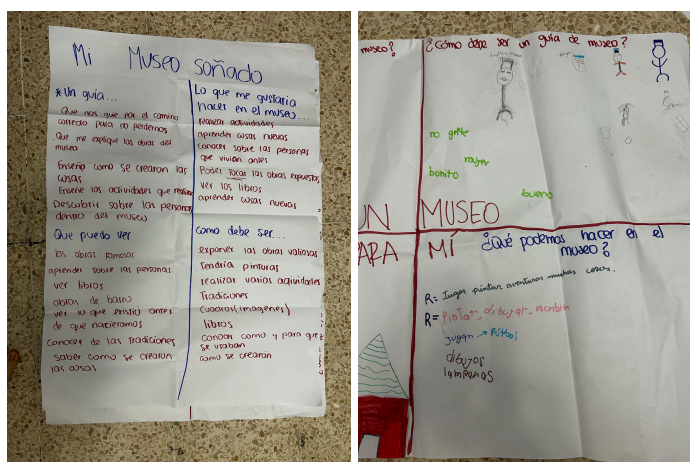 Mi Museo soñado
* Un guía...
Que nos guie por el camino
correcto para no perdernos
Que me explique las obras del
museo
Enseño como se crearon las
cosas
Enseñe las actividades que realizan
Descubrir sobre las personas
dentro del museo
Que puedo ver
las obras famosas
aprender sobre las personas
ver libros
obras de barro
ver lo que existio antes
de que nacieramos
conocer de las tradiciones
saber como se crearon
las cosas
Lo que me gustaria
hacer en el museo...
realizar actividades
aprender cosas nuevas
conocer sobre las personas
que vivian antes
Poder tocar las obras expuestas
ver los libros
aprender cosas nuevas
como debe ser...
exponer las obras valiosas
Tendria pinturas
realizar varias actividades
Tradiciones
cuadros (imagenes)
libros
conocer como y para que
se usaban
como se crearon
museo?
¿Cómo debe ser un guía de museo?
no grite
mujer
bonito
bueno
UN MUSEO
PARA MÍ
¿Qué podemos hacer en el
museo?
R= Jugar pintar aventuras muchas cosas.
R= Pintar, dibujar, escribir
jugar → Fútbol
dibujos
lamparas